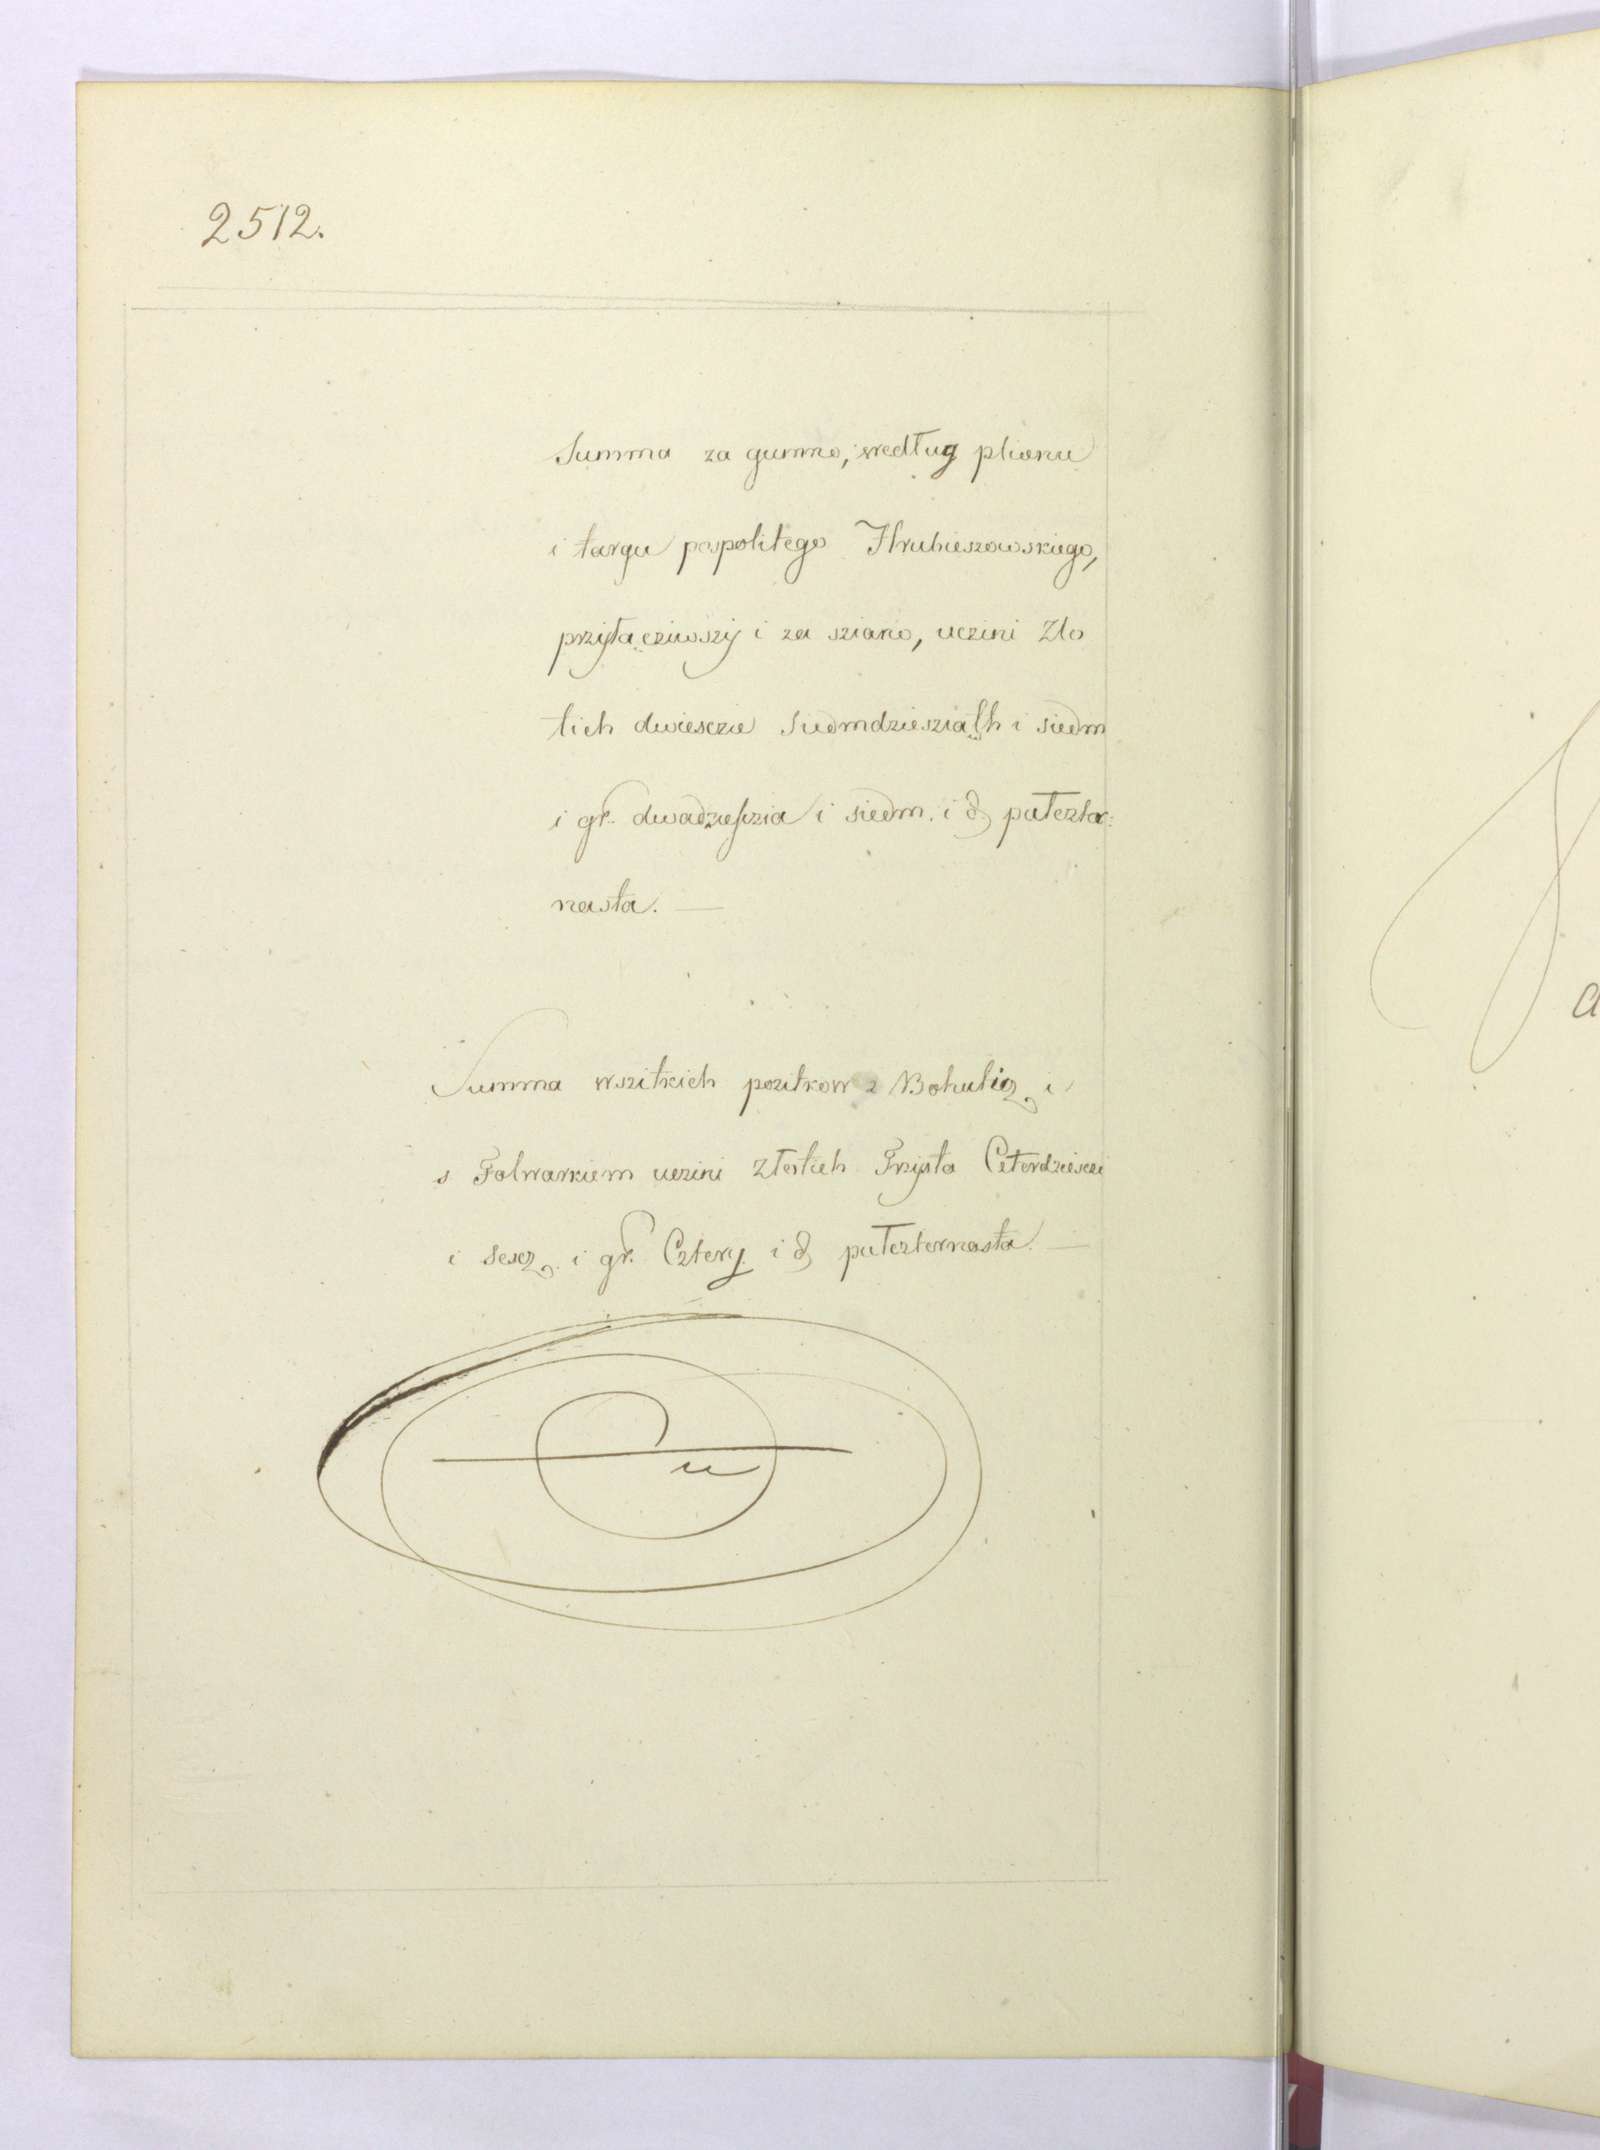 2512.
Summa za gumno, według plionu
i targu pospolitego Hrubieszowskiego,
przyłącziwszy i za sziano, uczini Zło
tich dwiesczie siedmdziesziath i siedm
i gr. dwadzieszia i siedm. i ₰ pułcztar:
nasta. —
Summa wszitkich pozitkow z Bohuticz i
s Folwarkiem uczini złotich Trzysta Czterdziesczi
i sescz i gr. Cztery i ₰ pułczternasta. —